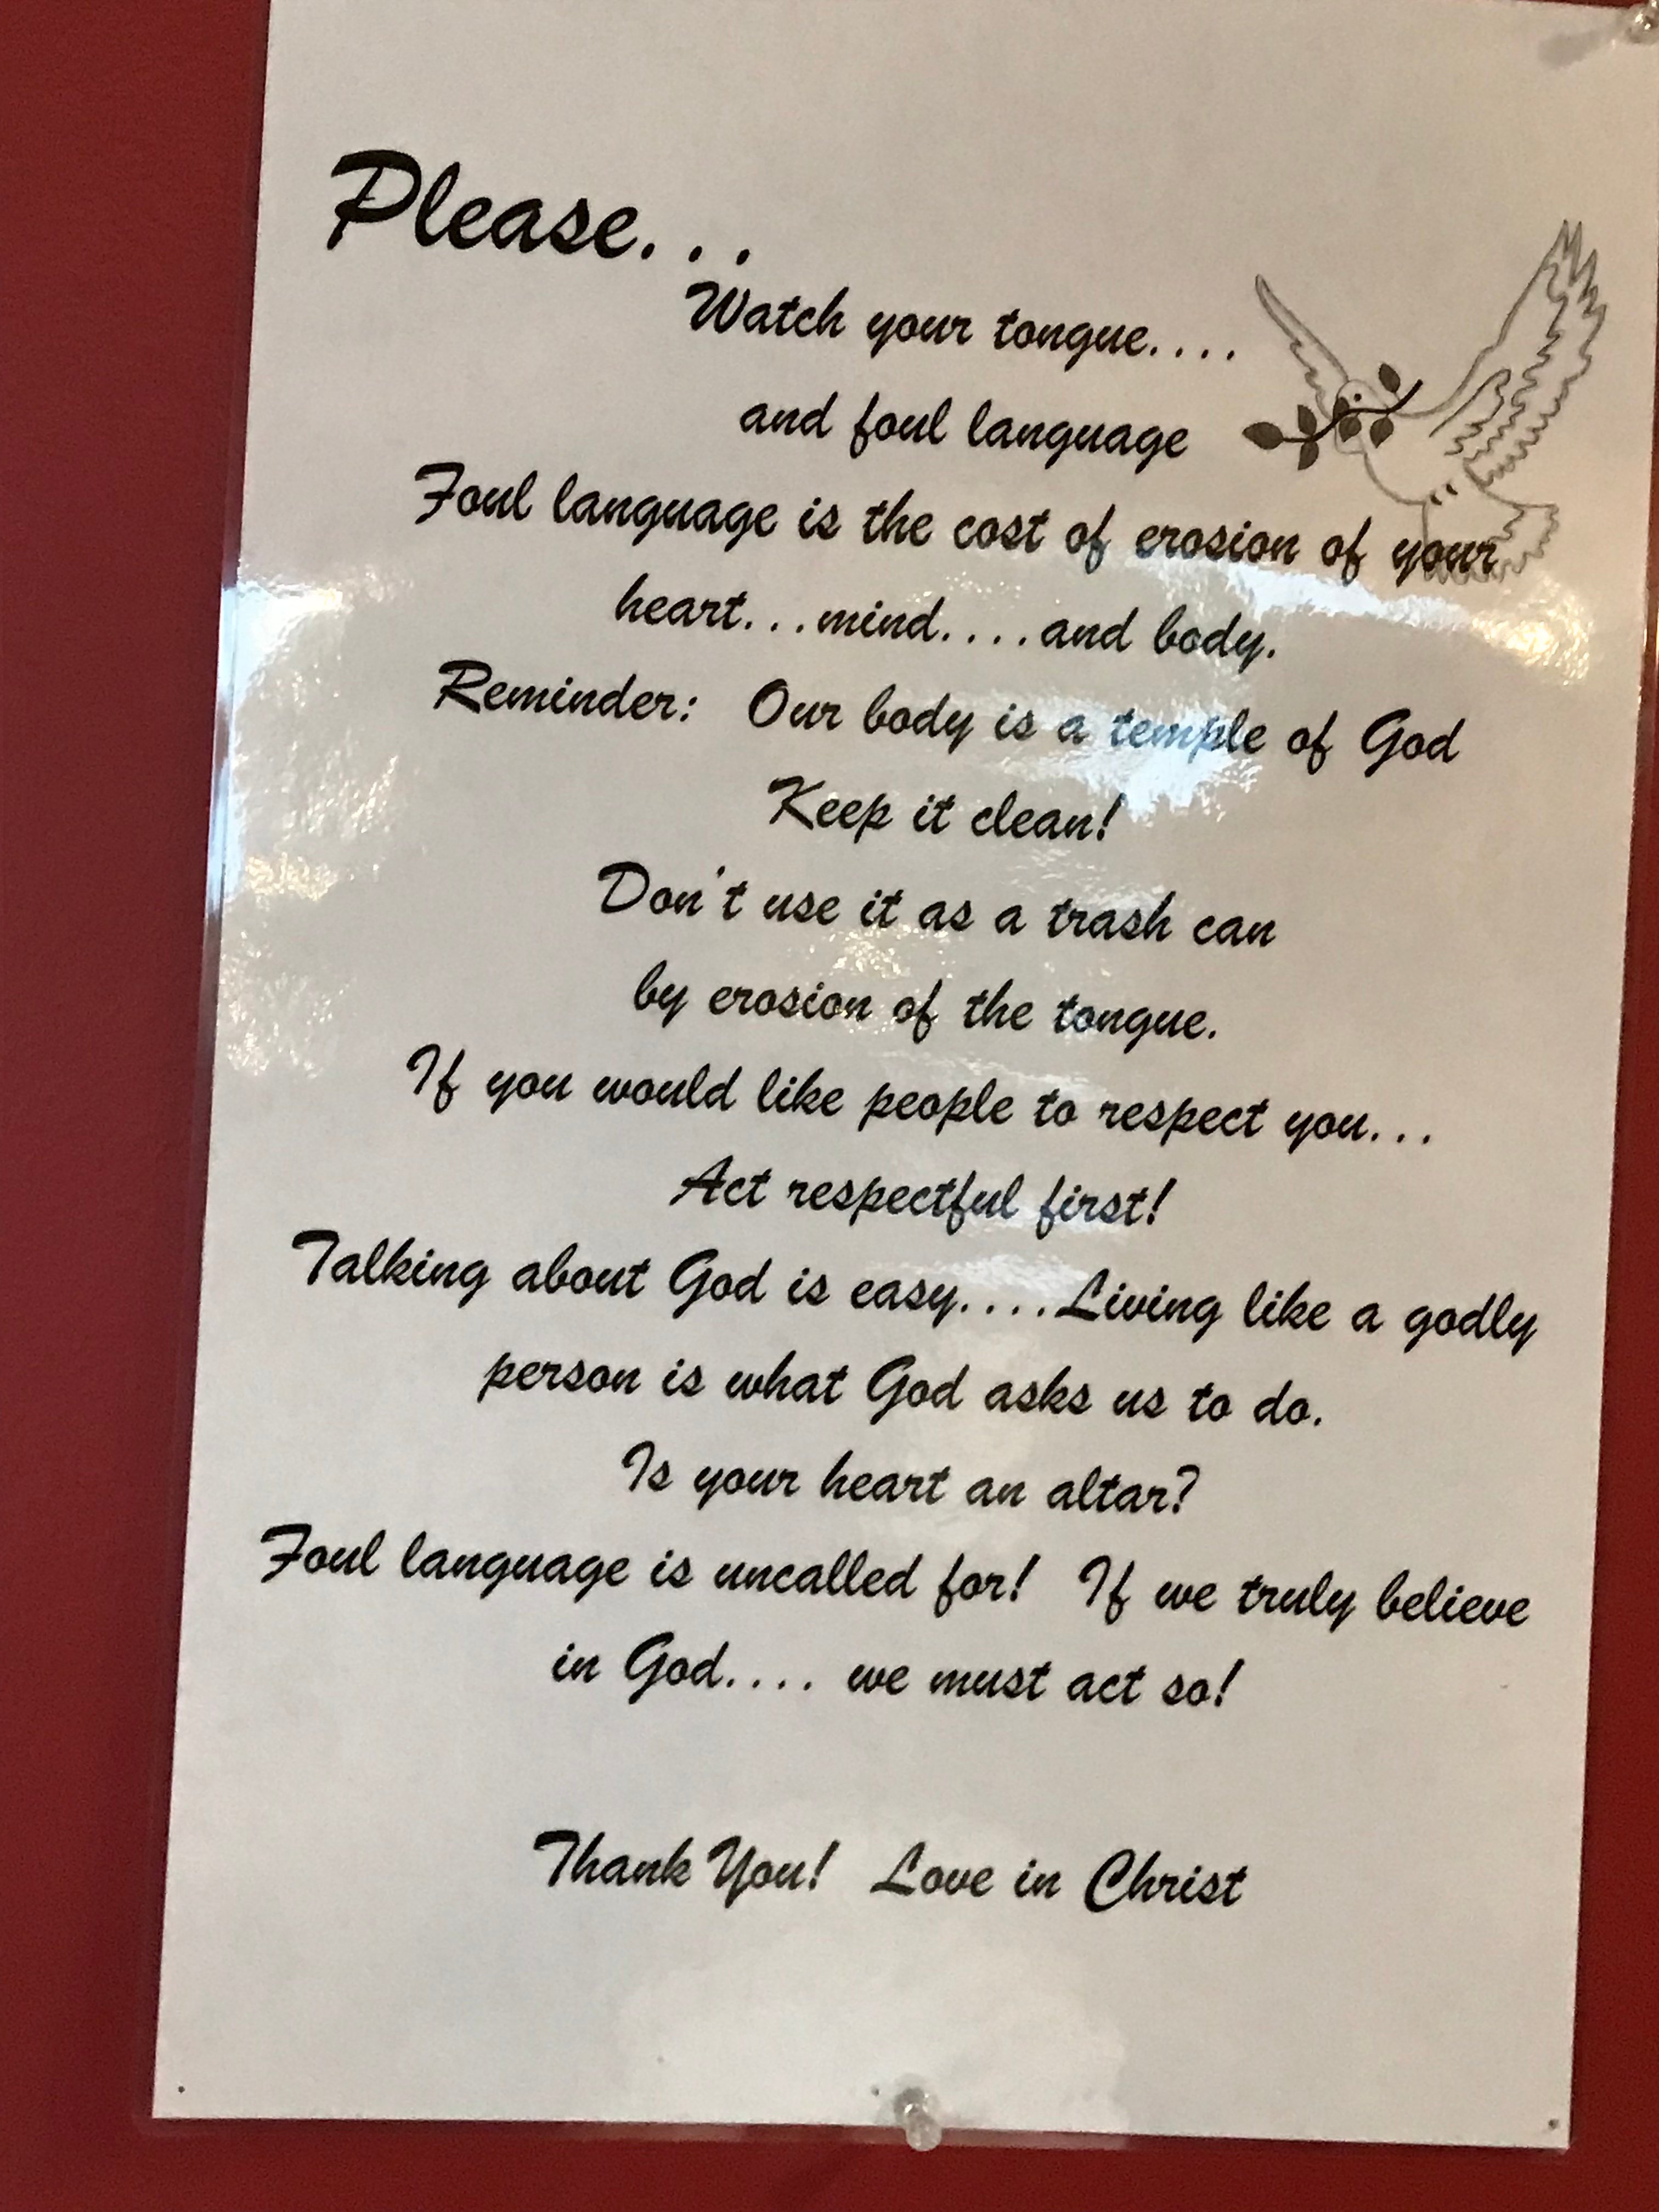 Please. . .
Watch your tongue. . . .
and foul language
Foul language is the cost of erosion of your
heart. . .mind. . . .and body.
Reminder: Our body is a temple of God
Keep it clean!
Don't use it as a trash can
by erosion of the tongue.
If you would like people to respect you. . .
Act respectful first!
Talking about God is easy. . . .Living like a godly
person is what God asks us to do.
Is your heart an altar?
Foul language is uncalled for! If we truly believe
in God. . . . we must act so!
Thank You! Love in Christ